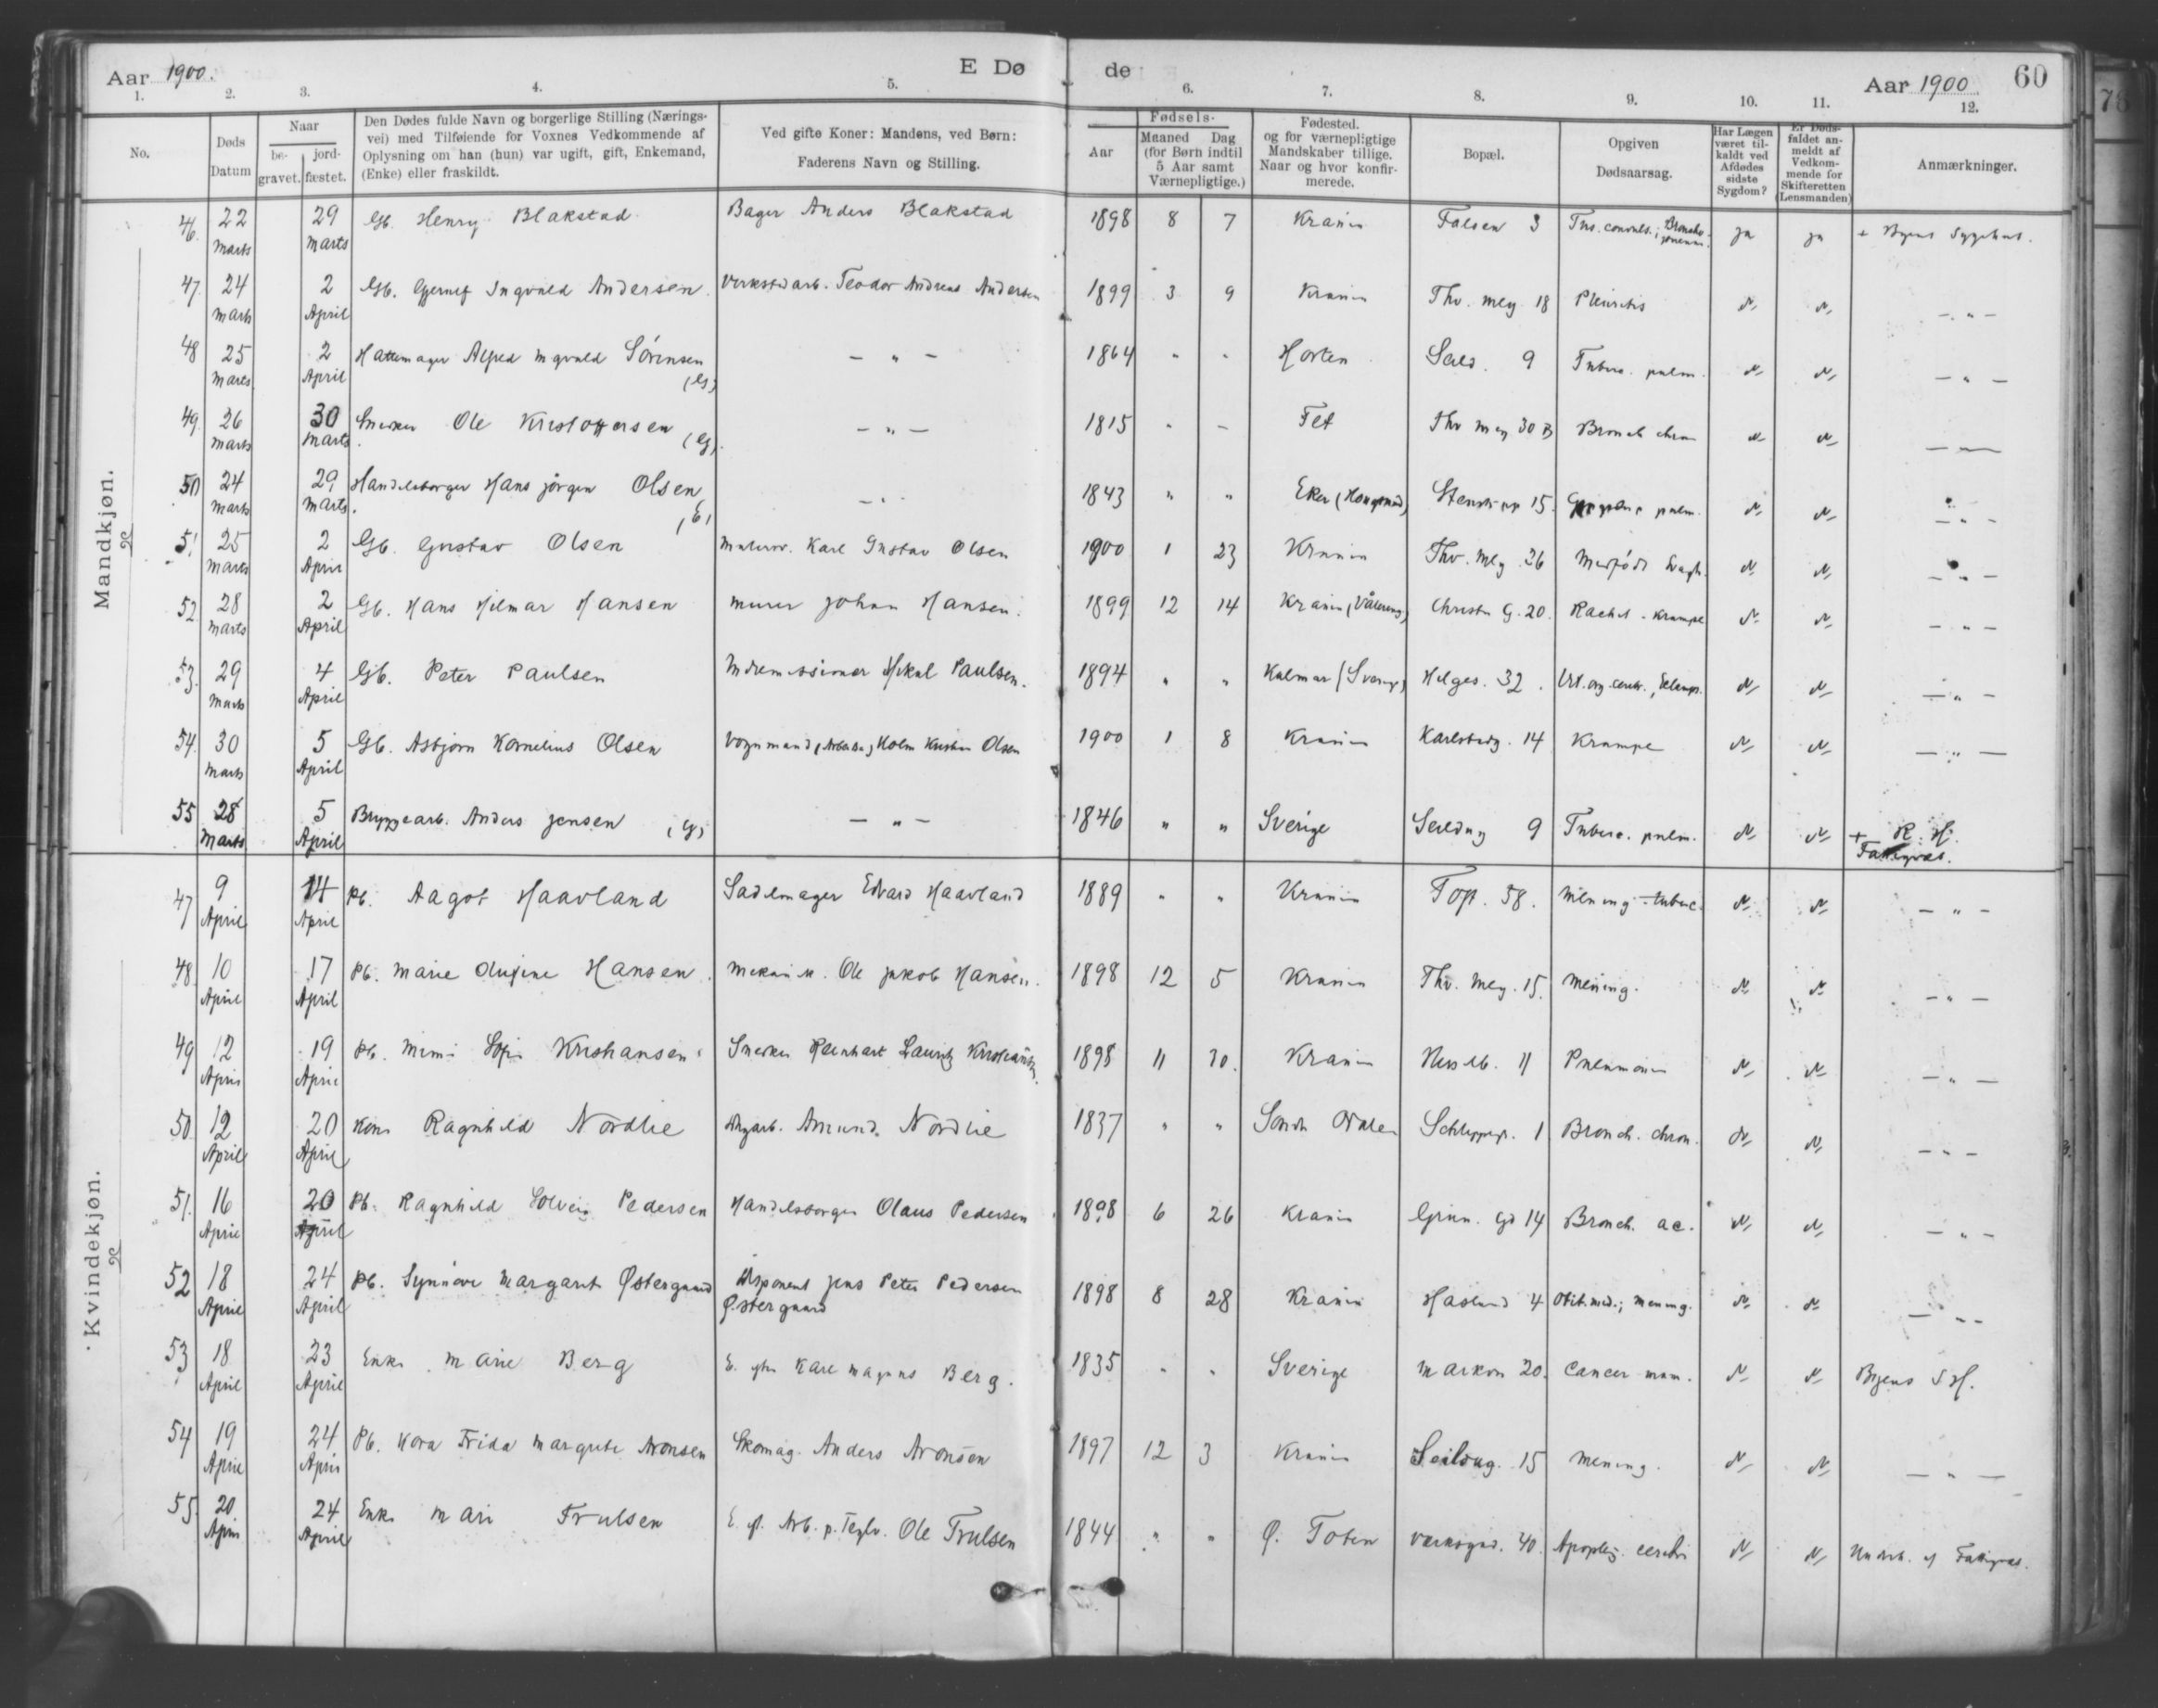 Aar 1900. E Dø de Aar 1900 60
1. 2. 3. 4. 5. 6. 7. 8. 9. 10. 11. 12.
No. Døds Datum Naar begravet. jordfæstet. Den Dødes fulde Navn og borgerlige Stilling (Næringsvei) med Tilføiende for Voxnes Vedkommende af Oplysning om han (hun) var ugift, gift, Enkemand, (Enke) eller fraskildt. Ved gifte Koner: Mandens, ved Børn: Faderens Navn og Stilling. Fødsels- Aar Maaned Dag (for Børn indtil 5 Aar samt Værnepligtige.) Fødested. og for værnepligtige Mandskaber tillige. Naar og hvor konfirmerede. Bopæl. Opgiven Dødsaarsag. Har Lægen været tilkaldt ved Afdødes sidste Sygdom? Er Dødsfaldet anmeldt af Vedkommende for Skifteretten (Lensmanden) Anmærkninger.
Mandkjøn.
46. 22 Marts 29 Marts Gb. Henry Blakstad Bager Anders Blakstad 1898 8 7 Krania Falsen 3 Tus. convuls.; Broncho-pneum. ja ja + Byens Sygehus.
47. 24 Marts 2 April Gb. Ingvald Andersen. Verkstdarb. Teodor Andreas Andersen 1899 3 9 Krania Thv. Mey. 18 Pleuritis N, N, — " —
48 25 Marts 2 April Hattemager Alfred Ingvald Sörensen (G) — " — 1864 " " Horten Seild. 9 Tuberc. pulm. N, N, — " —
49. 26 Marts 30 Marts Snekker Ole Kristoffersen (G). — " — 1815 " – Fet Thv Mey 30 B Bronch chron N, N,
50 24 Marts 29 Marts. Handelsborger Hans Jörgen Olsen (E) — " 1843 " " Eker (Hougsund) Stenstrup 15. pulm. N, N, — " —
51 25 Marts 2 April Gb. Gustav Olsen Karl Gustav Olsen 1900 1 23 Krania Thv. Mey. 26 Medfödt Svagh. N, N, — " —
52. 28 Marts 2 April Gb. Hans Hilmar Hansen Murer Johan Hansen. 1899 12 14 Krania (Vålereng) Christn G. 20. Rachit. - Krampe N, N, — " —
53. 29 Marts 4 April Gb. Peter Paulsen Indremissionær Mikal Paulsen. 1894 " " Kalmar (Sverige) Helges. 32. Vit. org. cordis., Eclamps. N, N, — " —
54. 30 Marts 5 April Gb. Asbjørn Kornelius Olsen Vognmand (Arbeider) Holm Kristian Olsen 1900 1 8 Krania Karlsborg. 14 Krampe N, N, — " —
55 28 Marts 5 April Bryggearb. Anders Jensen (G) — " — 1846 " " Sverige Seildug 9 Tuberc. pulm. N, N, + R. H. Fattigvæs.
Kvindekjøn.
47 9 April 14 April Pb. Aagot Haavland Sadelmager Edvard Haavland 1889 " " Krania Top. 58. Mening. tuberc. N, N, — " —
48 10 April 17 April Pb. Marie Olufine Hansen. Mekanik. Ole Jakob Hansen. 1898 12 5 Krania Thv. Mey. 15. Mening. N, N, — " —
49 12 April 19 April Pb. Mimi Sofie Kristiansen Snekker Reinhart Lauritz Kristiansen. 1898 11 30. Krania 11 Pneumoni N, N, — " —
50. 12 April 20 April Kone Ragnhild Nordlie Amund Nordlie 1837 " " Söndre Odalen Schleppegr. 1 Bronch. chron. N, N, — " —
51. 16 April 20 April Pb. Ragnhild Solveig Pedersen Handelsborger Olaus Pedersen 1898 6 26 Krania Grün. Gd 14 Bronch. ac. N, N, — " —
52 18 April 24 April Pb. Synnøve Margaret Østergaard Disponent Jens Peter Pedersen Østergaard 1898 8 28 Krania Haslund 4 Otit. med.; Mening. N, N, — " —
53 18 April 23 April Enke Marie Berg E. efter Karl Magnus Berg. 1835 " " Sverige Markv 20. Cancer mam. N, N, Byens S H.
54 19 April 24 April Pb. Kora Frida Margrete Aronsen Skomag. Anders Aronsen 1897 12 3 Krania Seildug. 15 Mening. N, N, — " —
55. 20. April 24 April Enke Mari Trulsen E. ef. Arb. p. Teglv. Ole Trulsen 1844 " " Ø. Toten Værksgad. 40. Apoplex. cerebri N, N, Underst. af Fattigvæs.